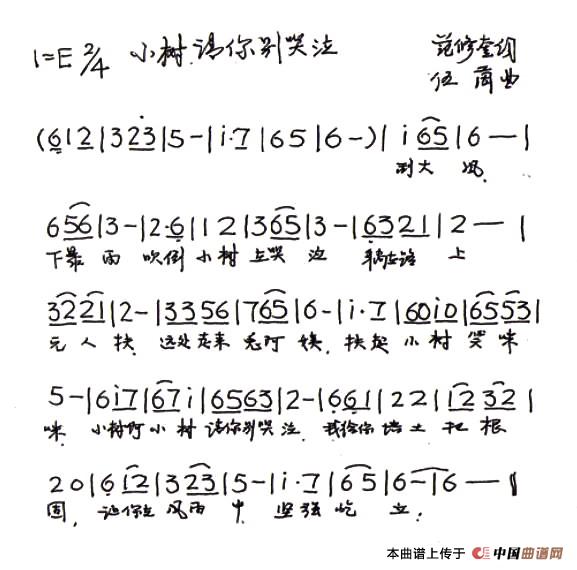 1=E 2/4 小树请你别哭泣
伍 曲
(6 1 2 | 3 2 3 | 5 - | i · 7 | 6 5 | 6 - ) | i 6 5 | 6 — |
刮大风
6 5 6 | 3 - | 2 · 6 | 1 2 | 3 6 5 | 3 - | 6 3 2 1 | 2 — |
下暴雨 吹倒小树在哭泣 路上
3 2 2 1 | 2 - | 3 3 5 6 | 7 6 5 | 6 - | i · 7 | 6 0 i 0 | 6 5 5 3 |
无人扶 远处走来 阿姨 扶起小树笑咪
5 - | 6 i 7 | 6 7 i | 6 5 6 3 | 2 - | 6 6 1 | 2 2 | 1 2 3 2 |
咪 小树啊小树请你别哭泣 我给你培土把根
2 0 | 6 1 2 | 3 2 3 | 5 - | i · 7 | 6 5 | 6 - | 6 — ‖
固 让你在风雨中 坚强屹立
本曲谱上传于 中国曲谱网